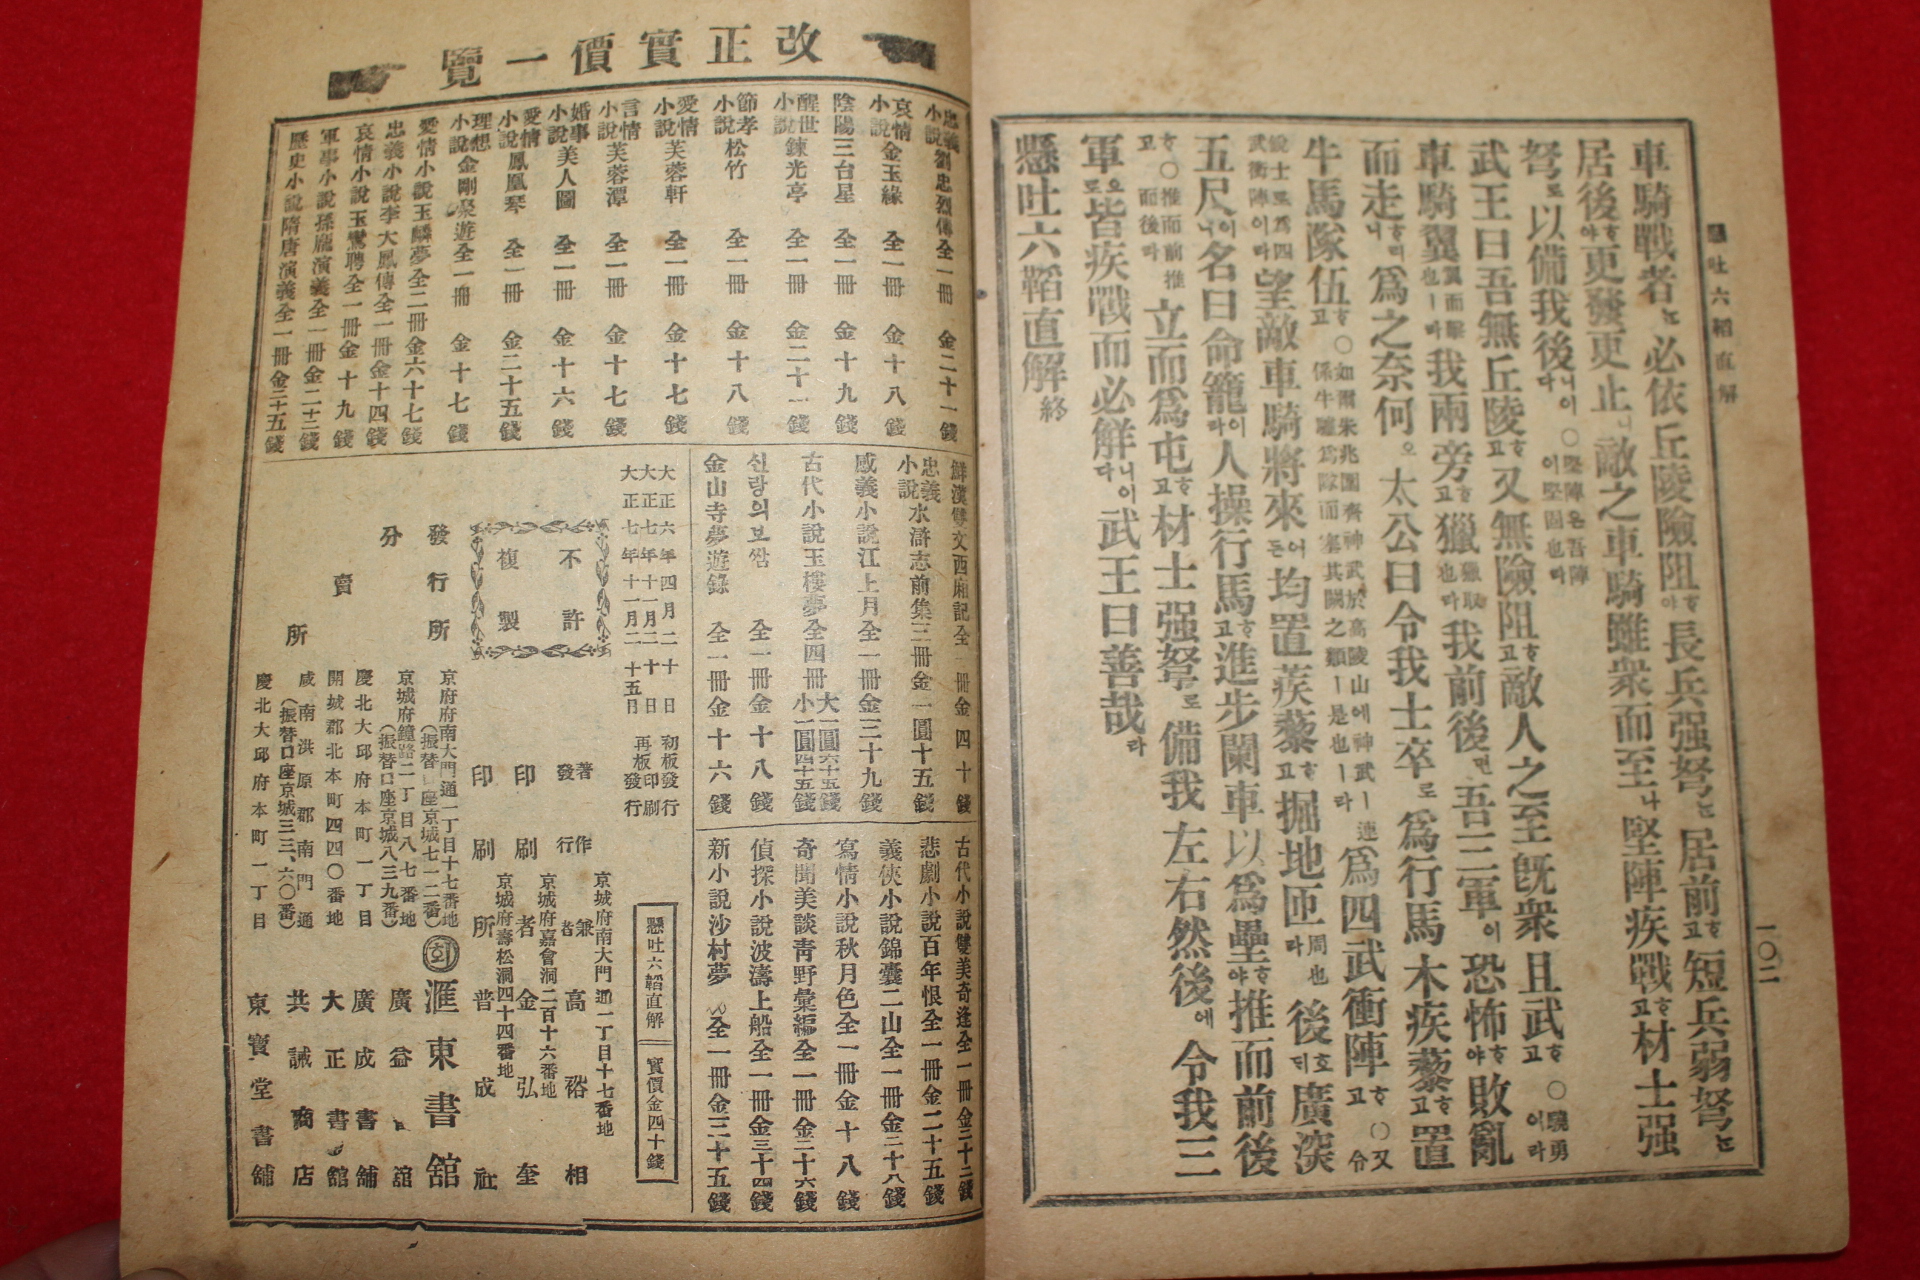 懸吐六韜直解
一〇二
車騎戰者는必依丘陵險阻야長兵强弩居前고短兵弱弩는
居後야更發更止니敵之車騎雖衆而至나堅陣疾戰고材士强
弩로以備我後니이다〇堅陣은吾陣이堅固也라
武王曰吾無丘陵고又無險阻고敵人之至旣衆且武고〇驍勇이라
車騎翼我兩旁고獵我前後면吾三軍이恐怖야敗亂
而走니爲之奈何오太公曰令我士卒로爲行馬木疾藜고置
牛馬隊伍고爲四武衝陣고
望敵車騎將來든均置疾藜고掘地匝라周也後디廣深
五尺니名曰命籠라人操行馬고進步闌車以爲壘야推而前後
立而爲屯고材士强弩로備我左右然後에令我三
軍로皆疾戰而必解니이다武王曰善哉라
懸吐六韜直解終
改正實價一覽
忠義小說劉忠烈傳全一冊金二十一錢
哀情小說金玉緣全一冊金十八錢
陰陽三台星全一冊金十九錢
醒世小說鍊光亭全一冊金二十一錢
節孝小說松竹全一冊金十八錢
愛情小說芙蓉軒全一冊金十七錢
言情小說芙蓉潭全一冊金十七錢
婚事小說美人圖全一冊金十六錢
愛情小說鳳凰琴全一冊金二十五錢
理想小說金剛聚遊全一冊金十七錢
愛情小說玉麟夢全二冊金六十七錢
忠義小說李大鳳傳全一冊金十四錢
哀情小說玉鸞聘全一冊金十九錢
軍事小說孫龐演義全一冊金二十三錢
歷史小說隋唐演義全一冊金三十五錢
鮮漢雙文西廂記全一冊金四十錢
忠義小說水滸志前集三冊金一圓十五錢
感義小說江上月全一冊金三十九錢
古代小說玉樓夢全四冊大一圓六十五錢小一圓四十五錢
신랑의보쌈全一冊金十八錢
金山寺夢遊錄全一冊金十六錢
古代小說雙美奇逢全一冊金三十二錢
悲劇小說百年恨全一冊金二十五錢
義俠小說錦囊二山全一冊金二十八錢
寫情小說秋月色全一冊金十八錢
奇聞美談靑野彙編全一冊金二十六錢
偵探小說波濤上船全一冊金三十四錢
新小說沙村夢全一冊金三十五錢
大正六年四月二十日初板發行
大正七年十一月二十日再板印刷
大正七年十一月二十五日再板發行
懸吐六韜直解 實價金四十錢
不許
複製
京城府南大門通一丁目十七番地
著作兼發行者 高裕相
京城府嘉會洞二百十六番地
印刷者 金弘奎
京城府壽松洞四十四番地
印刷所 普成社
發行所 京城府南大門通一丁目十七番地(振替口座京城七一二番) 회 滙東書舘
分賣所
京城府鐘路二丁目八七番地(振替口座京城八三九番) 廣益書舘
慶北大邱府本町一丁目 廣成書舖
開城郡北本町四四〇番地 大正書舘
咸南洪原郡南門通(振替口座京城三三、六〇番) 共誠商店
慶北大邱府本町一丁目 東寶堂書舖